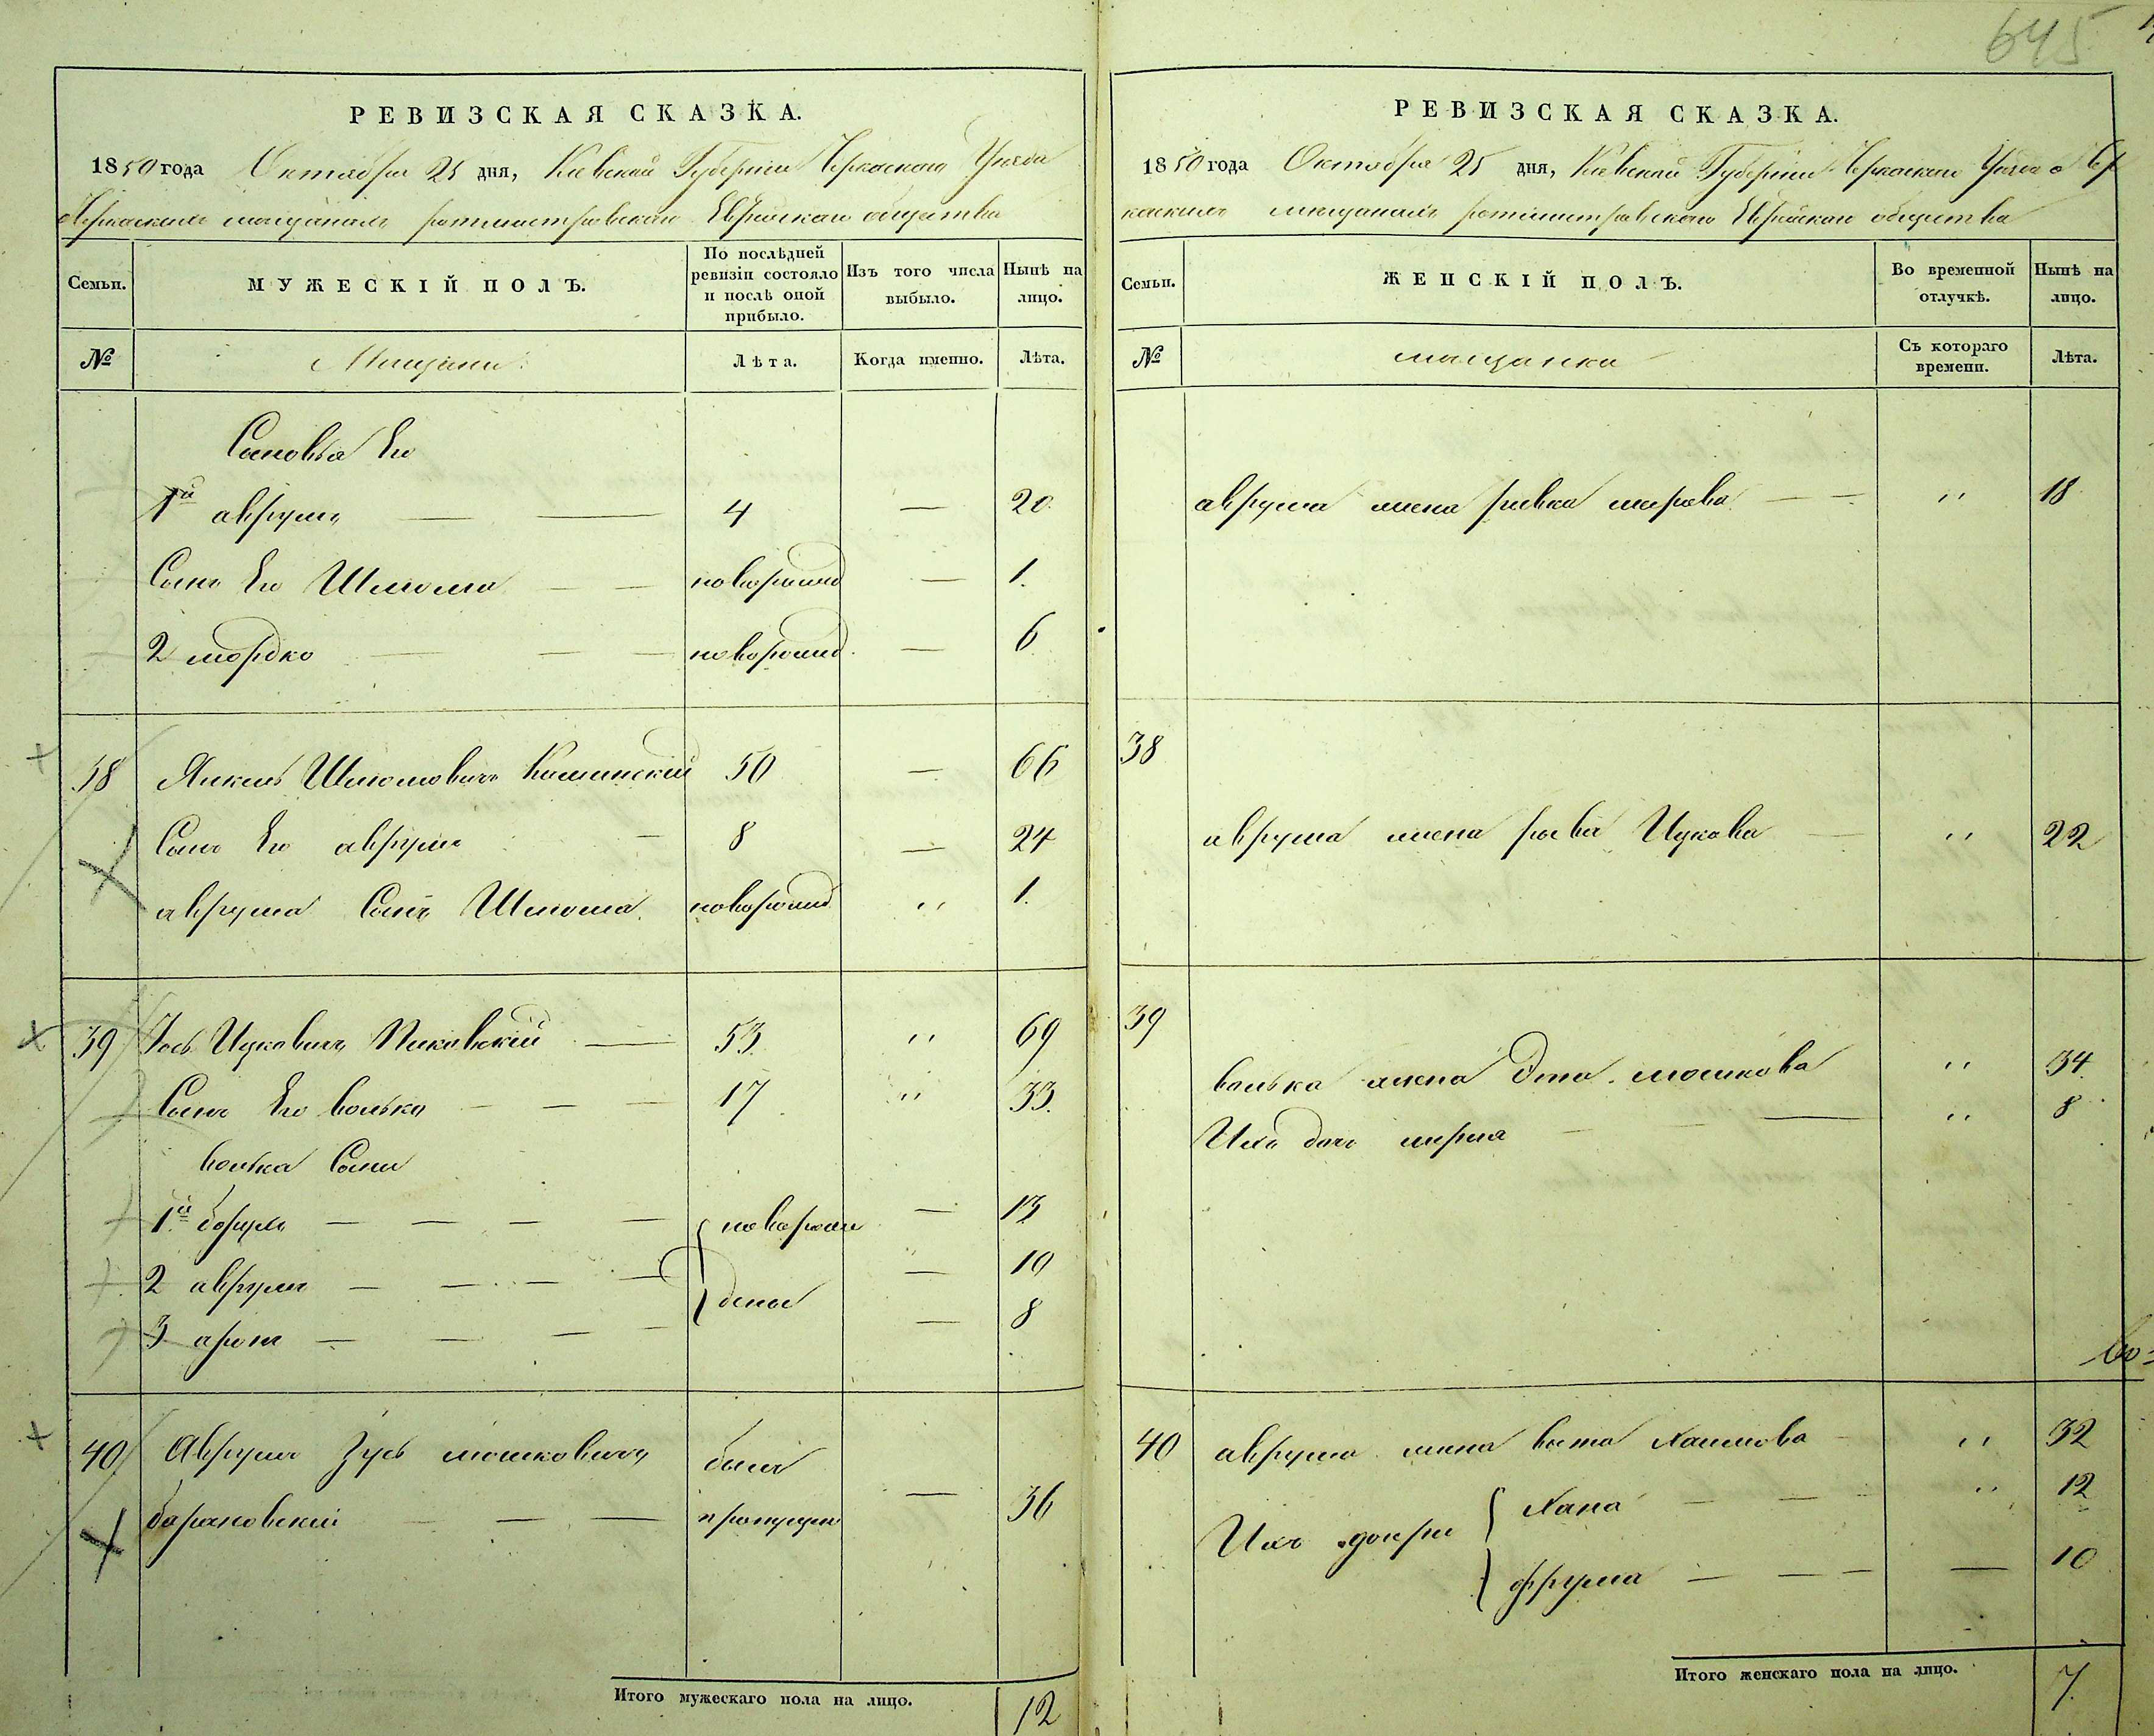 645
РЕВИЗСКАЯ СКАЗКА.
1850 года Октября 25 дня, Киевской Губернии Черкаского Уезда
о Черкаскихъ мещанахъ ротмистровскаго Еврейскаго общества
Семьи.
МУЖЕСКІЙ ПОЛЪ.
По послѣдней ревизіи состояло и послѣ оной прибыло.
Изъ того числа выбыло.
Нынѣ на лицо.
№
Мещани
Лѣта.
Когда именно.
Лѣта.
Сыновья Его
1й аврумъ — — 4 — 20
Сынъ Его Шлиома — — новорожд — 1.
2 мордко — — — новорожд — 6
38 Янкель Шлиомовичъ Каминскій 50 — 66
Сынъ Его аврумъ — 8 — 24
аврума Сынъ Шлиома новорожд " 1.
39 Іось Ицковичъ Пиковскій — 53 " 69
Сынъ Его волько — — — 17 " 33.
волька Сыни
1й борухъ — — — — новорож — 13
2 аврумъ — — — — — 10
дены
3 аронъ — — — — — 8
40 Аврумъ Зусь мошковичъ былъ
барановскій — — — пропущен — 36
Итого мужескаго пола на лицо.
12
РЕВИЗСКАЯ СКАЗКА.
1850 года Октября 25 дня, Киевской Губернии Черкаскаго Уезда о Чер
каскихъ мещанахъ ротмистровскаго Еврейскаго общества
Семьи.
ЖЕНСКІЙ ПОЛЪ.
Во временной отлучкѣ.
Нынѣ на лицо.
№
мещанки
Съ котораго времени.
Лѣта.
аврума жена ривка — — " 18
38
аврума жена Ицкова — " 22
39
волька жена мошкова " 34
Ихъ дочь мирка — — — " 8
40 аврума жена Хаимова — " 32
Ихъ дочери
Хана — — — " 12
фрума — — — — 10
Итого женскаго пола на лицо.
7.